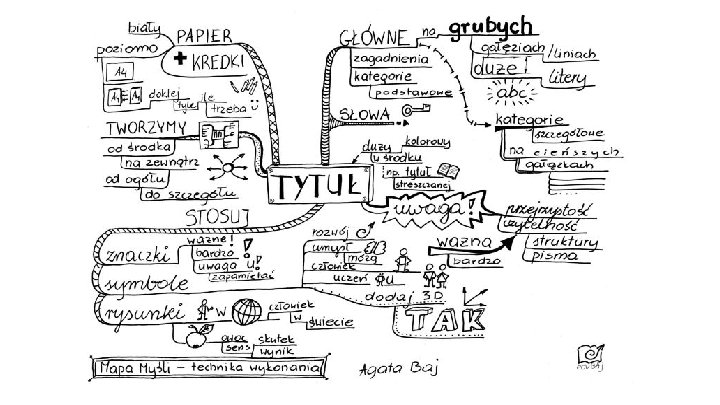 biały
PAPIER
poziomo
+ KREDKI
A4
A4 A4
doklej
tyle ile
trzeba
TWORZYMY
od środka
na zewnątrz
od ogółu
do szczegółu
GŁÓWNE
na grubych
gałęziach / liniach
duże!
litery
abc
zagadnienia
kategorie
podstawowe
SŁOWA
kategorie
szczegółowe
na cieńszych
gałązkach
TYTUŁ
duży kolorowy
u środku
np. tytuł
streszczanej
uwaga!
ważna
bardzo
przejrzystość
czytelność
struktury
pisma
STOSUJ
znaczki
ważne!
bardzo
uwaga!
zapamiętać
symbole
rozwój
umysł
mózg
człowiek
uczeń
dodaj 3D
TAK
rysunki
w
człowiek
w
świecie
owoc
sens
skutek
wynik
Mapa Myśli – technika wykonania
Agata Baj